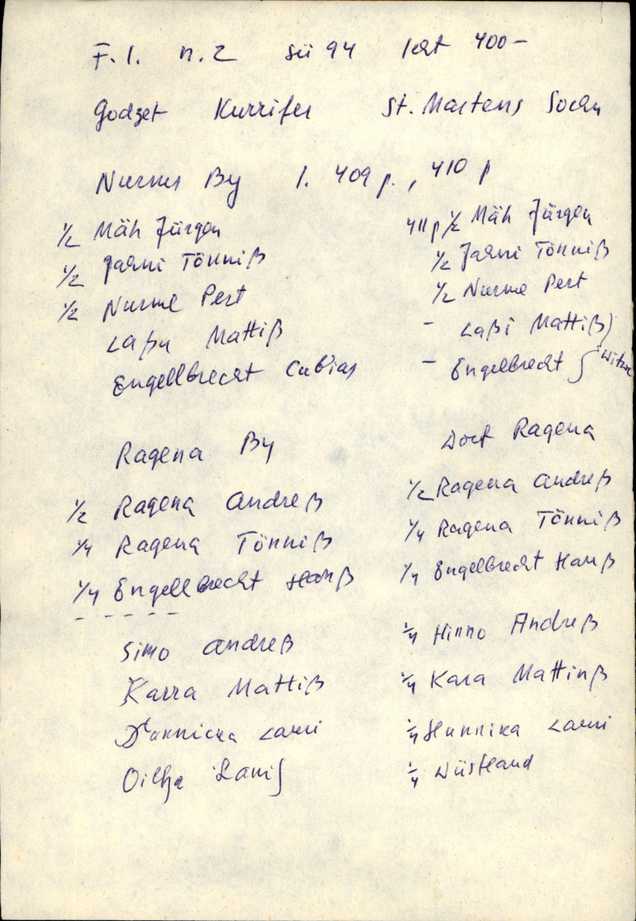 F.1. n.2 sü 94 leht 400-
Godzet Kurrifer St. Martens Sockn
Nurmis By l. 409 p., 410 p
1/2 Mäh Jürgen
1/2 Jarni Tönniß
1/2 Nurme Pert
Laßu Mattiß
Engellbrecht Cubias
411 p 1/2 Mäh Jürgen
1/2 Jarni Tönniß
1/2 Nurme Pert
- Laßi Mattiß)
- Engelbrecht
Ragena By
1/2 Ragena Andreß
1/4 Ragena Tönniß
1/4 Engellbrecht Hanß
- - - - -
Simo Andreß
Karra Mattiß
Lauri
Dorf Ragena
1/2 Ragena Andreß
1/4 Ragena Tönniß
1/4 Engelbrecht Hanß
1/4 Hinno Andreß
1/4 Kara Mattinß
1/4 Hunnika Lauri
1/4 Wüstland